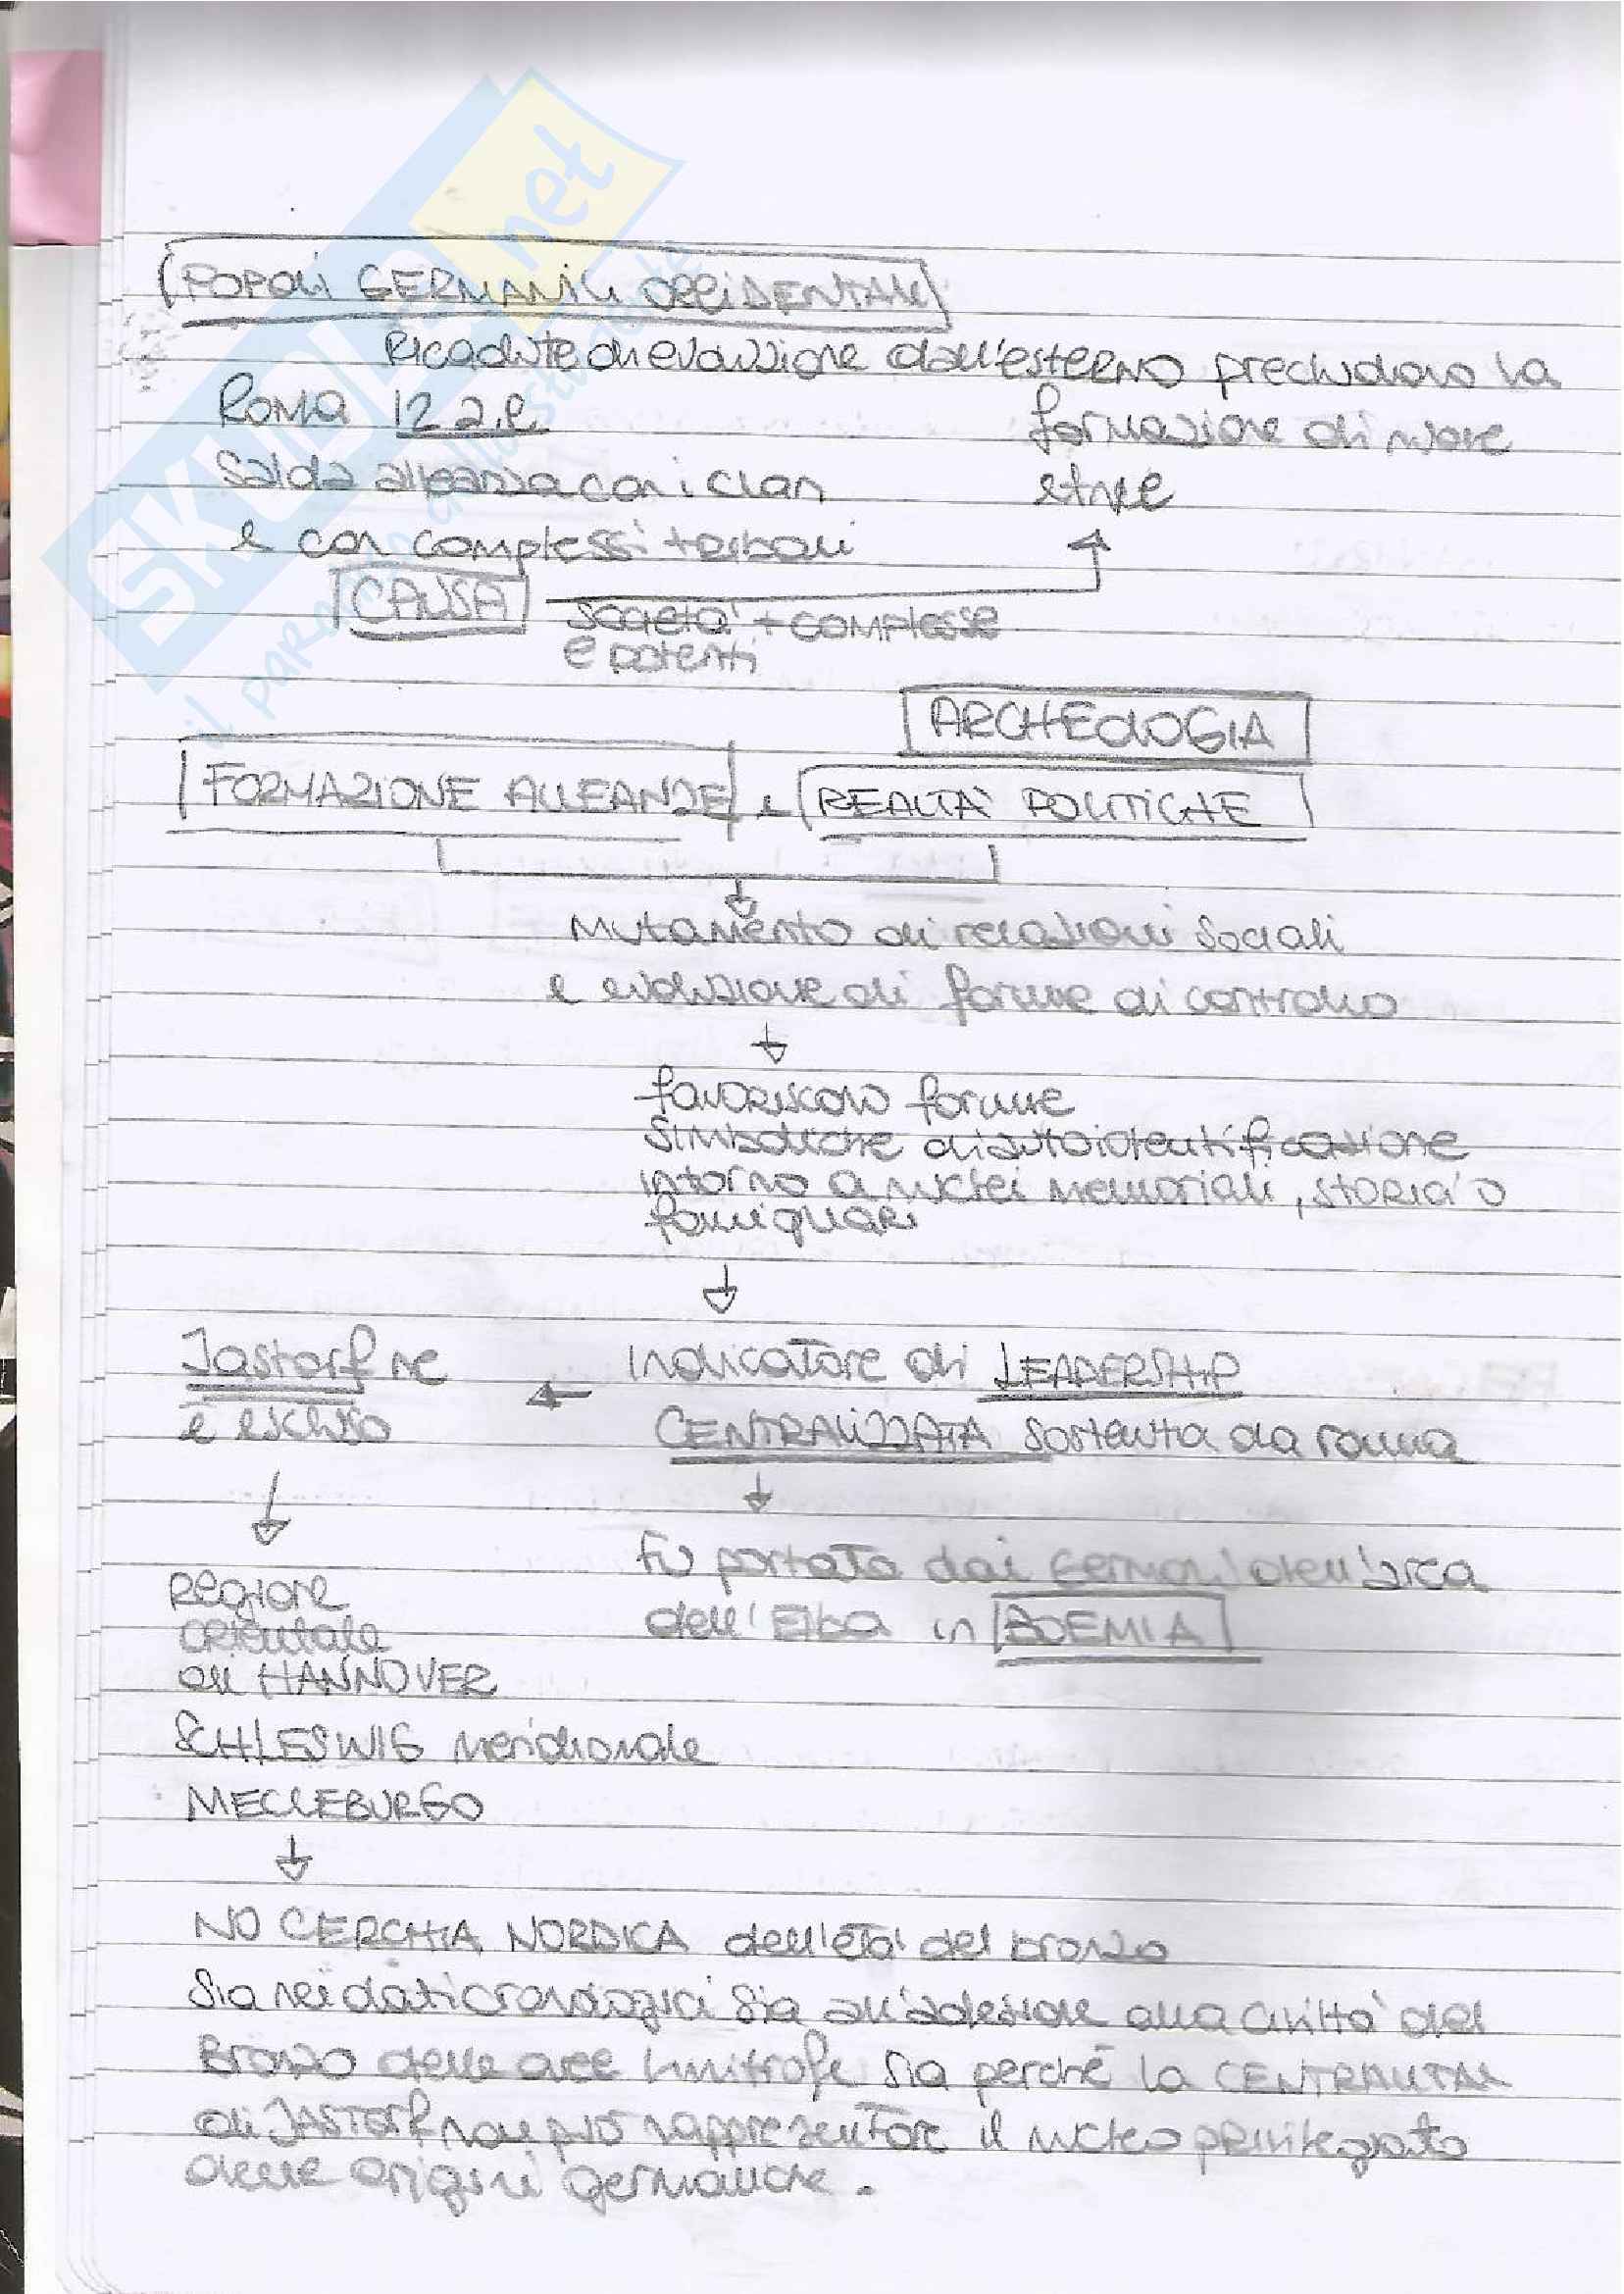 SKUOLA.net
il paradiso dello studente
POPOLI GERMANICI OCCIDENTALI
Ricadute di evoluzione dall'esterno precludono la
Roma 12 a.C.
formazione di nuove
Salda alleanza con i clan
etnie
e con complessi tribali
CAUSA
società + complesse
e potenti
ARCHEOLOGIA
FORMAZIONE ALLEANZE e REALTÀ POLITICHE
Mutamento di relazioni sociali
e evoluzione di forme di controllo
favoriscono forme
simboliche di autoidentificazione
intorno a nuclei memoriali, storici o
famigliari
Jastorf ne
indicatore di LEADERSHIP
è escluso
CENTRALIZZATA sostenuta da roma
Fu portata dai Germani dell'area
Regione
dell'Elba in BOEMIA
orientale
di HANNOVER
SCHLESWIG meridionale
MECLEBURGO
NO CERCHIA NORDICA dell'età del bronzo
Sia nei dati cronologici sia all'adesione alla civiltà del
Bronzo delle aree limitrofe sia perché la CENTRALITÀ
di JASTORF non può rappresentare il nucleo privilegiato
delle origini germaniche.